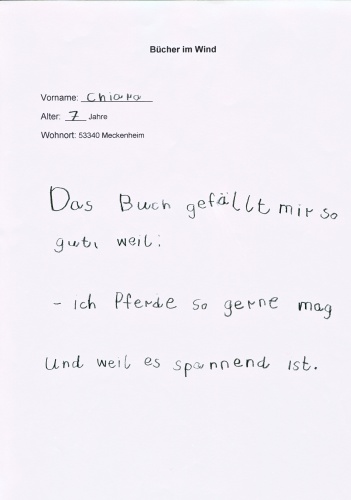 Bücher im Wind
Vorname: Chiara
Alter: 7 Jahre
Wohnort: 53340 Meckenheim
Das Buch gefällt mir so
gut, weil:
- ich Pferde so gerne mag
Und weil es spannend ist.